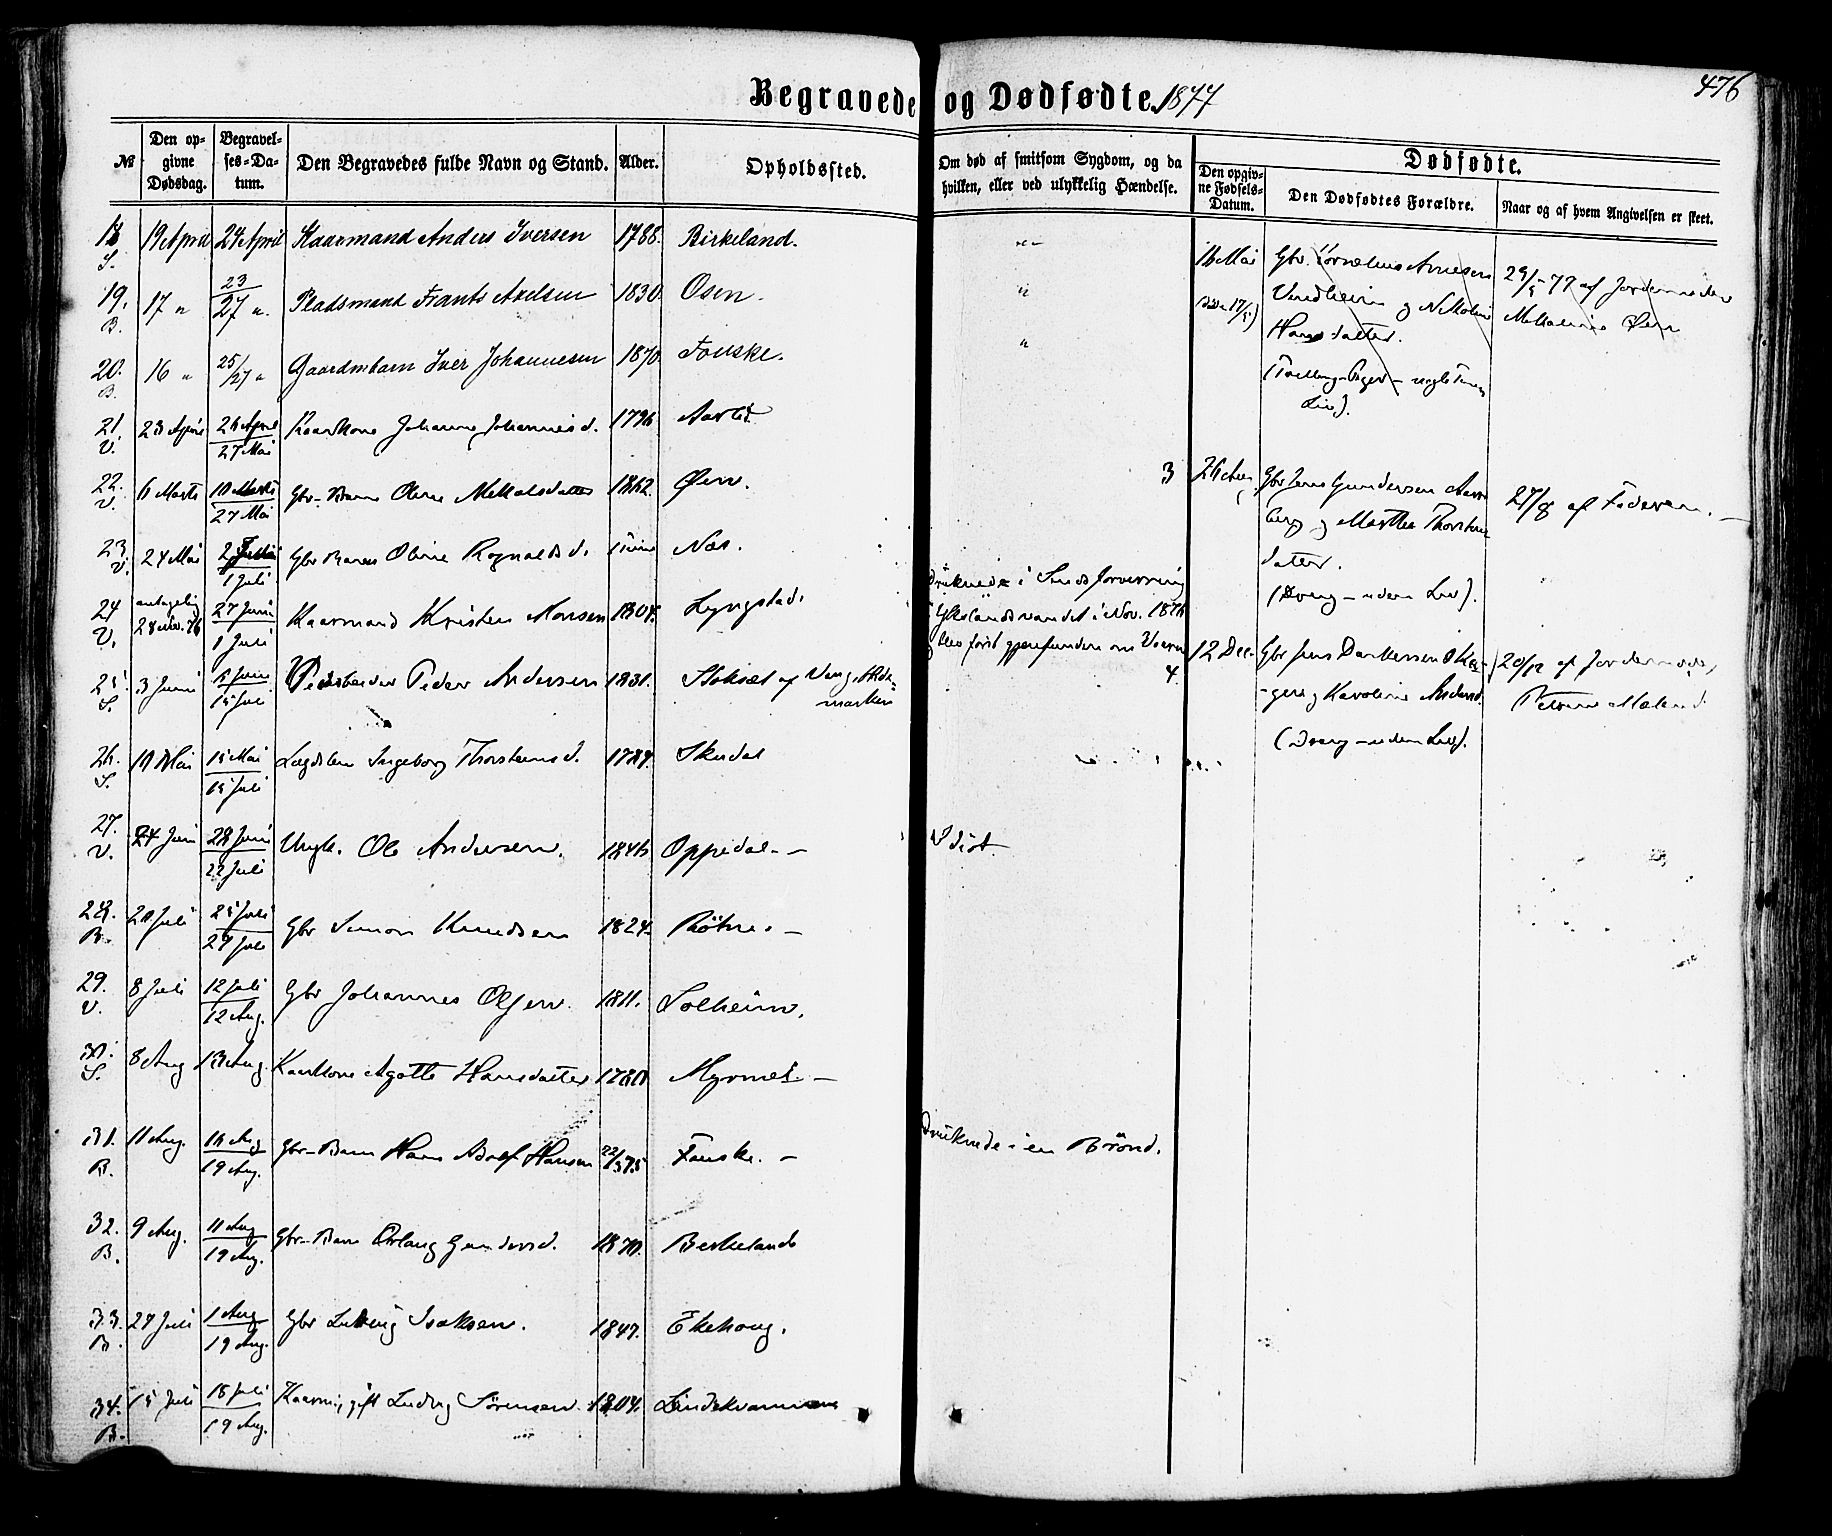 476
Begravede og Dødfødte 1877
№
Den opgivne Dødsdag.
Begravelses-Datum.
Den Begravedes fulde Navn og Stand.
Alder.
Opholdssted.
Om død af smitsom Sygdom, og da hvilken, eller ved ulykkelig Hændelse.
Dødfødte.
Den opgivne Fødsels-Datum.
Den Dødfødtes Forældre.
Naar og af hvem Angivelsen er skeet.
18 S. 19 April 24 April Kaarmand Anders Iversen 1788. Birkeland. "
19. B. 17 " 23/27 " Pladsmand Frants Axelsen 1830. Osen. "
20. B. 16 " 25/27 " Gaardmbarn Iver Johannesen 1870. Fauske. "
21. V. 23 April 26 April 27 Mai Kaarkone Johanne Johannesd. 1796
22. V. 6 Marts 10 Marts 27 Mai Gbr-Barn Oline 1862. Øen.
23. V. 24 Mai 1 Juli Gbr Barn Oline Ragnaldsd. Næs.
24 V. antagelig 28 Nov. 76 27 Juni 1 Juli Kaarmand Kristen Monsen 1804. Lyngstad.
druknede i Sindsforvirring
i Nov. 1876
blev først gjenfunden om Vaaren
25. S. 3 Juni 15 Juli Peder Andersen 1831.
26. S. 10 Mai 15 Mai 15 Juli Lægdslem Ingeborg Thorsteinsd. 1787. Skudal
27. V. 24 Juni 28 Juni 22 Juli Ungk. Ole Andersen. 1846 Oppedal. - Idiot.
28. B. 20 Juli 25 Juli 29 Juli Gbr Simon Knudsen 1824. -
29. V. 8 Juli 12 Juli 12 Aug. Gbr Johannes Olsen. 1811. Solheim.
30. S. 8 Aug 13 Aug. Kaarkone Agotte Hansdatter 1780 Myrmel. -
31. B. 11 Aug. 14 Aug 19 Aug. Gbr-Barn Hans Adolf Hansen 22/3 75 Fauske. - druknede i en Brønd.
32. B. 9 Aug. 11 Aug 19 Aug. Gbr-Barn Gundersd. 1870. Berkeland
33. B. 27 Juli 1 Aug 19 Aug. Gbr Ludvig Isaksen. 1847. Ekehoug.
34. B. 15 Juli 18 Juli 19 Aug. Kaarm., gift Ludvig Sørensen 1804.
16 Mai Gbr. Kornelius Arnesen 29/5 77 af Jordemoder
17/5) Vindheim og Nikoline
Hansdatter.
Liv).
3 26 Gbr Jens Gundersen 27/8 af Faderen. -
og Marthe Thorsteins
datter.
(Dreng - uden Liv).
4. 12 Dec. Gbr Jens 20/12 af Jordemoder
og Karoline Andersd.
(Dreng - uden Liv).